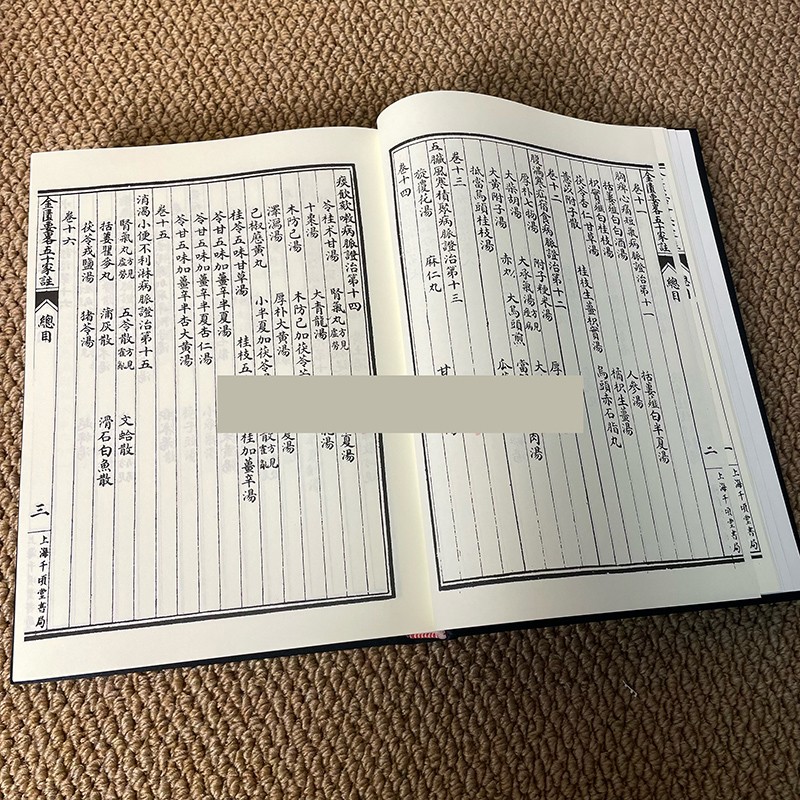 一
上海千頃堂書局
金匱要略五十家註
總目
二
上海千頃堂書局
卷十一
胸痺心痛短氣病脈證治第十一
括蔞薤白白酒湯 括蔞薤白半夏湯
枳實薤白桂枝湯 人參湯
茯苓杏仁甘草湯 橘枳生薑湯
薏苡附子散 桂枝生薑枳實湯 烏頭赤石脂丸
卷十二
腹滿寒疝宿食病脈證治第十二
厚朴七物湯 附子粳米湯 厚
大柴胡湯 大承氣湯方見痙病 大 湯
大黃附子湯 赤丸 大烏頭煎 當 肉湯
抵當烏頭桂枝湯 瓜
卷十三
五臟風寒積聚病脈證治第十三
旋覆花湯 麻仁丸 甘 湯
卷十四
痰飲欬嗽病脈證治第十四
苓桂朮甘湯 腎氣丸方見虛勞 夏湯
十棗湯 大青龍湯 湯
木防己湯 木防己加茯苓
澤瀉湯 厚朴大黃湯 湯
己椒藶黃丸 小半夏加茯苓 散方見霍亂
桂苓五味甘草湯 桂枝五 桂加薑辛湯
苓甘五味加薑辛半夏湯
苓甘五味加薑辛半夏杏仁湯
苓甘五味加薑辛半杏大黃湯
卷十五
消渴小便不利淋病脈證治第十五
腎氣丸方見虛勞 五苓散方見霍亂 文蛤散
括蔞瞿麥丸 蒲灰散 滑石白魚散
茯苓戎鹽湯 豬苓湯
卷十六
金匱要略五十家註
總目
三
上海千頃堂書局